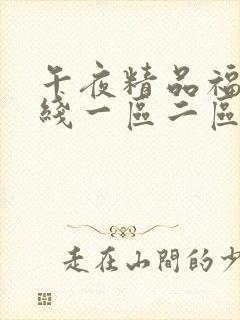 午夜精品福
綫一區二區
走在山間的少